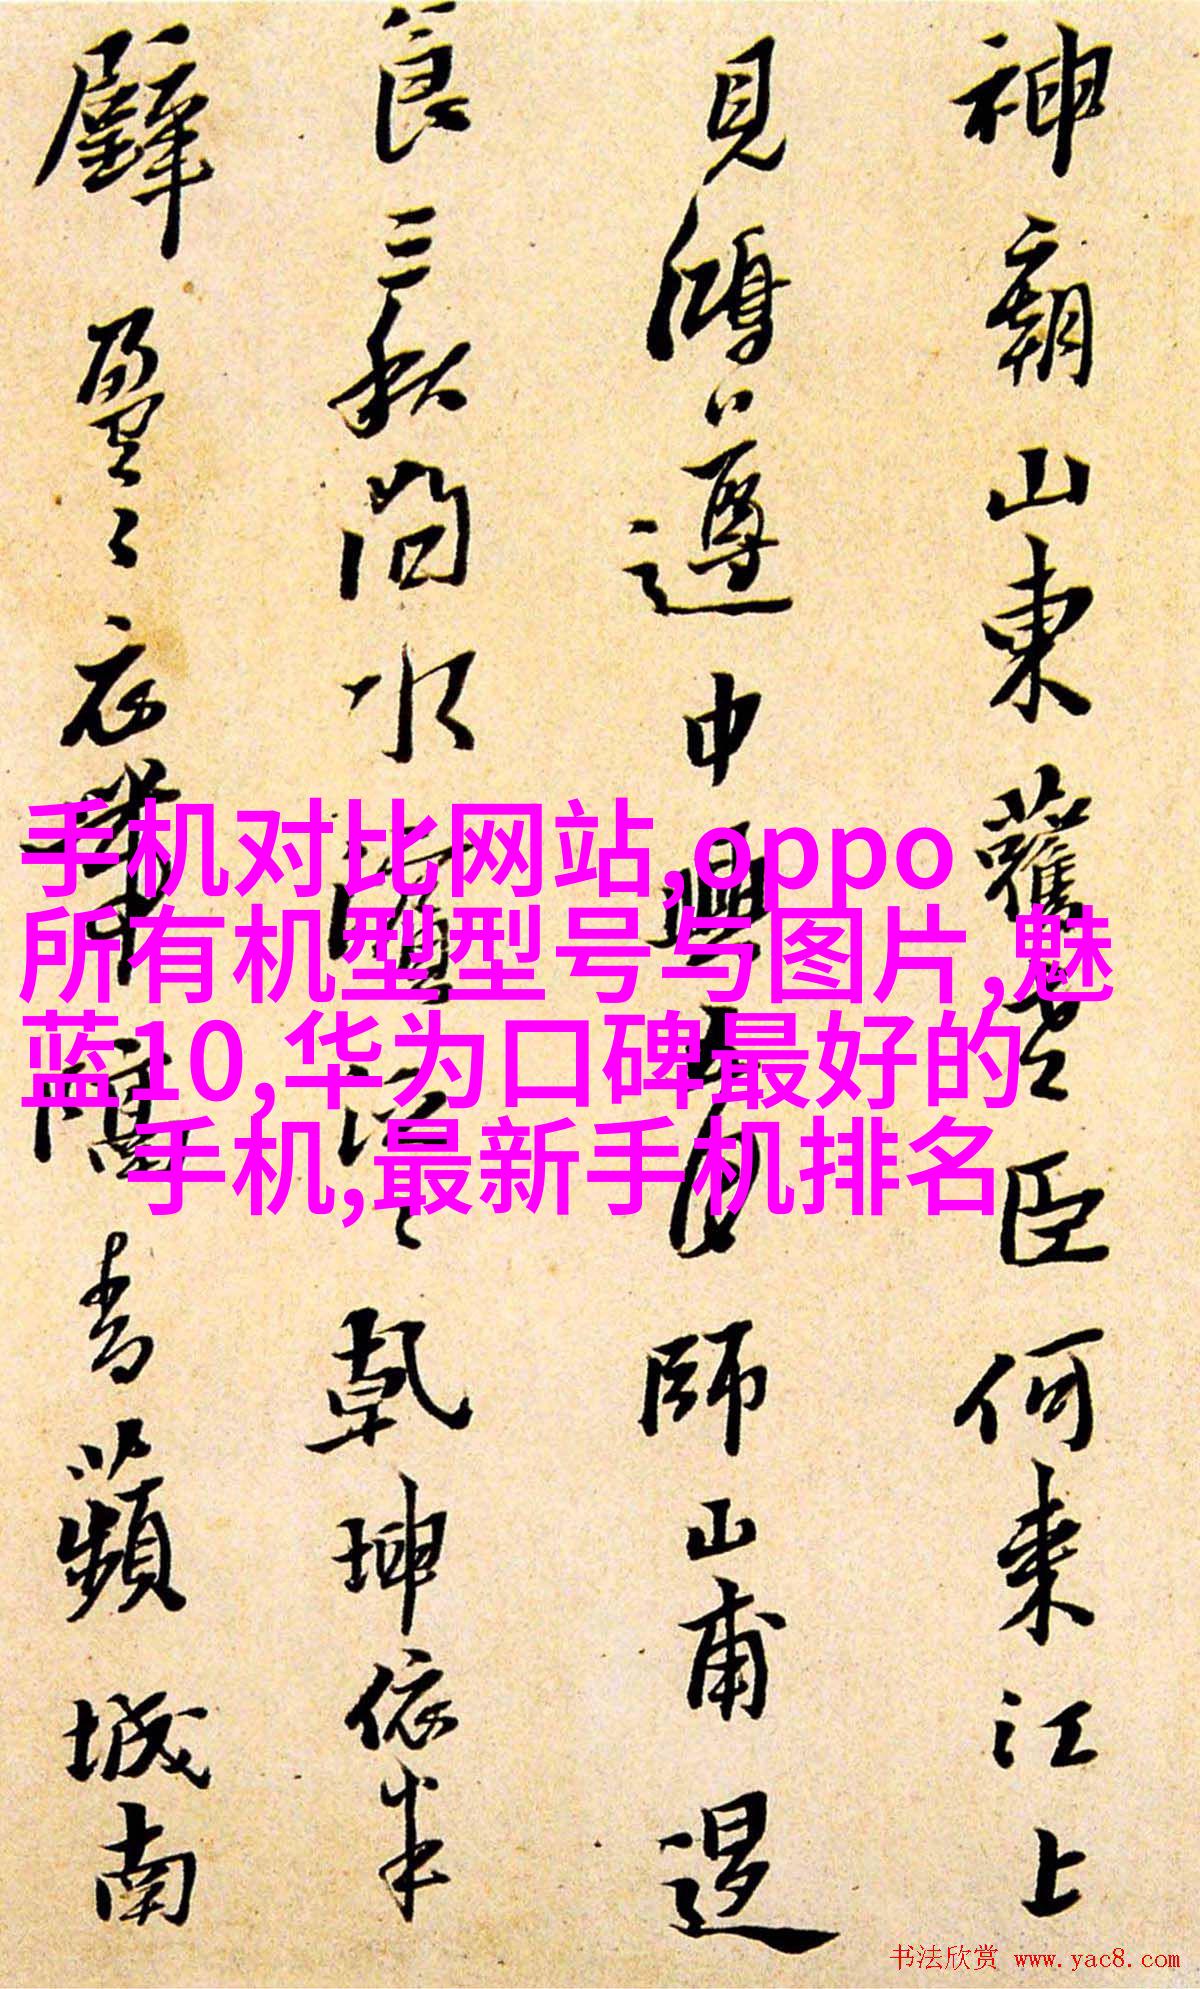 神廟山東舊老臣何來江上
見鴻遵中興師山甫
三秋問水濱乾坤依半
壁盈々衣帶隔青蘋城南
手机对比网站,oppo
所有机型型号与图片,魅
蓝10,华为口碑最好的
手机,最新手机排名
书法欣赏 www.yac8.com